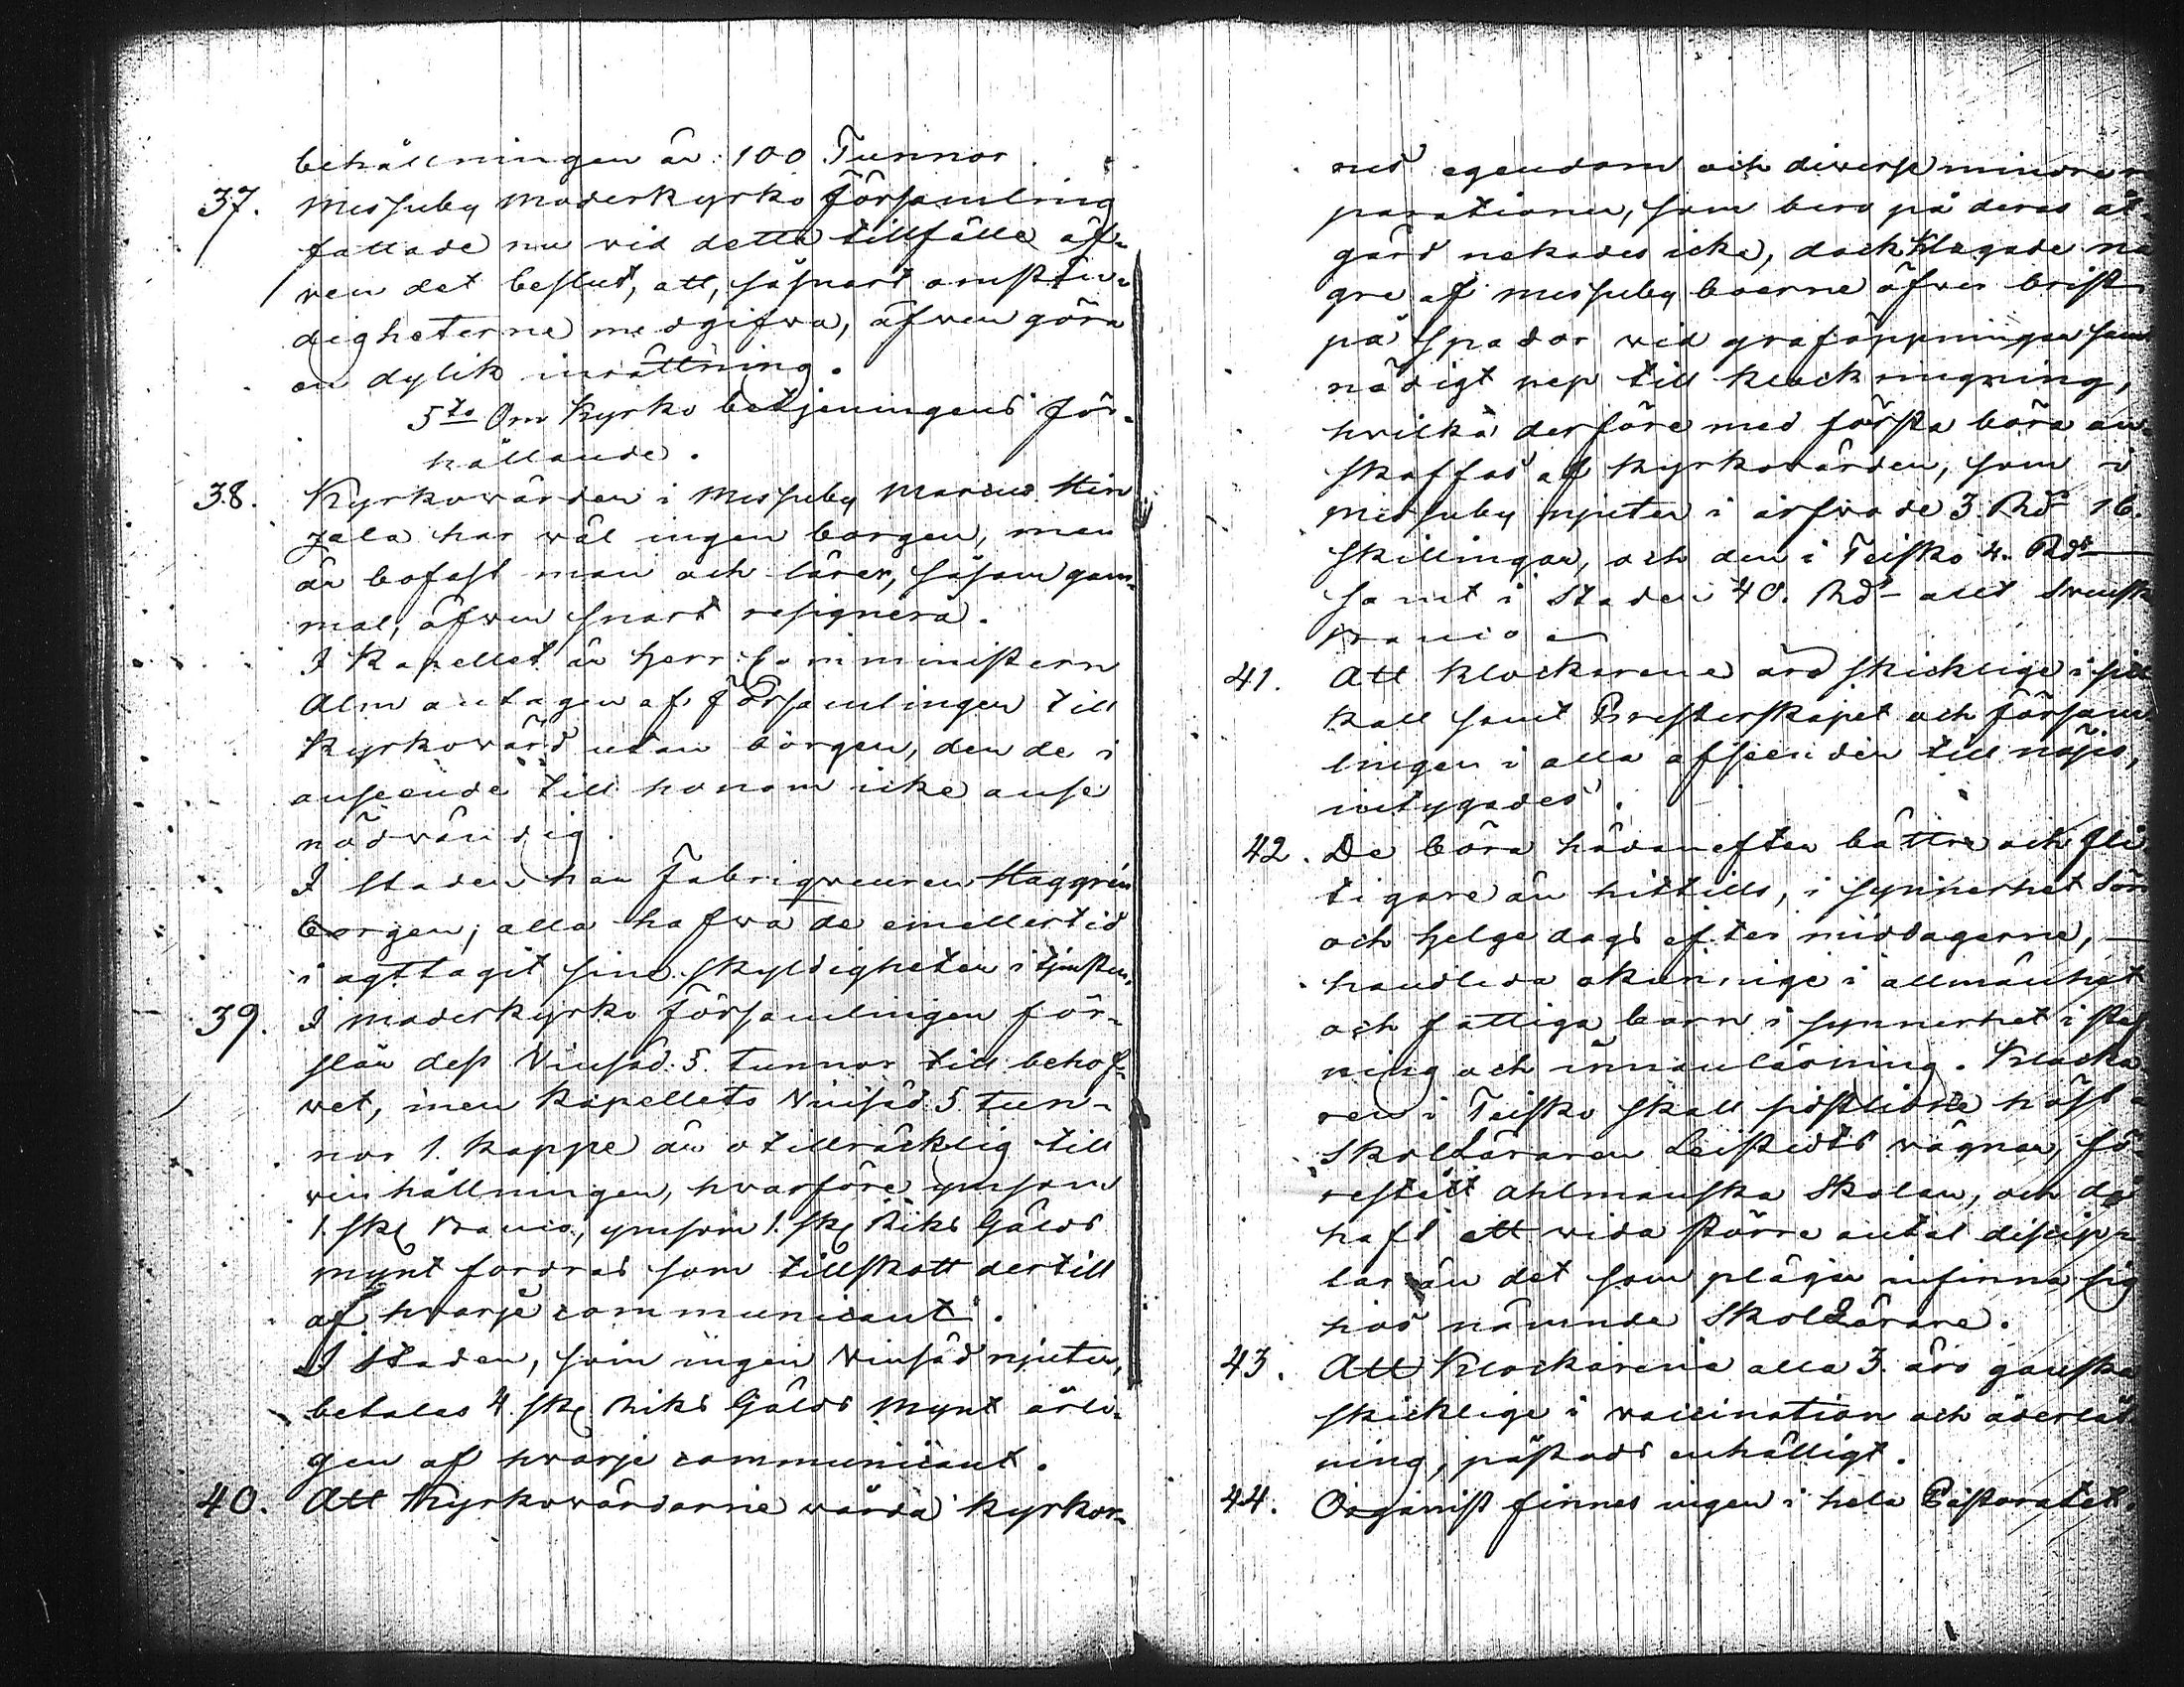 behållningen är 100 Tunnor
37. Messuby Moderkyrko Församling
fattade nu vid detta tillfälle äf-
ven det beslut, att, såsnart omstän-
digheterne medgifva, äfwen göra
en dylik inrättning.
5to Om Kyrko betjeningens för-
hållande.
38. Kyrkowärden i Messuby Marcus Hin
zala har wäl ingen borgen, men
är bofast man och lärer, såsom gam-
mal, äfwen snart resignera.
I Kapellet är Herr Comministern
Alm antagen af Församlingen till
Kyrkowärd utan borgen, den de i
anseende till honom icke anse
nödwändig.
I staden har Fabriqveuren Haggrén
borgen; alla hafwa de emellertid
i agttagit sina skyldigheter i tjensten.
39. I Moderkyrko Församlingen för-
slår dess Vinsäd 5. Tunnor till behof-
wet, men Kapellets Vinsäd 5. Tun-
nor 1. Kappe är otillräcklig till
vinhållningen, hwarföre ymsom
1. sk. Banco, ymsom 1. sk. Riks Gälds
mynt fordras som tillskott dertill
af hwarje communicant.
I Staden, som ingen Vinsäd njuter,
betalas 4. sk. Riks Gälds Mynt årli-
gen af hwarje communicant.
40. Att Kyrkowärdarne wårda kyrkor-
nes egendom och diverse mindre re
parationer, som bero på deras åt-
gärd nekades icke, dock klagade nå
gre af Messubyboerne öfwer brist
på Spador wid graföppningar samt
nödigt rep till klockringning,
hwilka derföre med första böra an-
skaffas af kyrkowärden, som i
Messuby njuter i arfvode 3. Rd 16.
skillingar, och den i Teisko 4. Rdr
samt i Staden 40. Rd allt Swensk
Banco
41. Att Klockarene äro skicklige i sitt
kall samt Presterskapet och försam
lingen i alla afseenden till nöjes,
intygades.
42. De böra hädanefter bättre och fli
tigare än hittills, i synnerhet Sön
och Helgedags eftermiddagarne,
handleda okunnige i allmänhet
och fattiga barn i synnerhet i staf
ning och innanläsning. Klocka
ren i Teisko skall sistlidne höst å
SkolLäraren Leistedts wägnar, fö-
restått Ahlmanska Skolan, och då
haft ett wida större antal discip-
lar än det som pläga infinna sig
hos nämnde SkolLärare.
43. Att Klockarena alla 3. äro ganska
skicklige i vaccination och åderlåt
ning, påstods enhälligt.
44. Organist finnes ingen i hela Pastoratet.